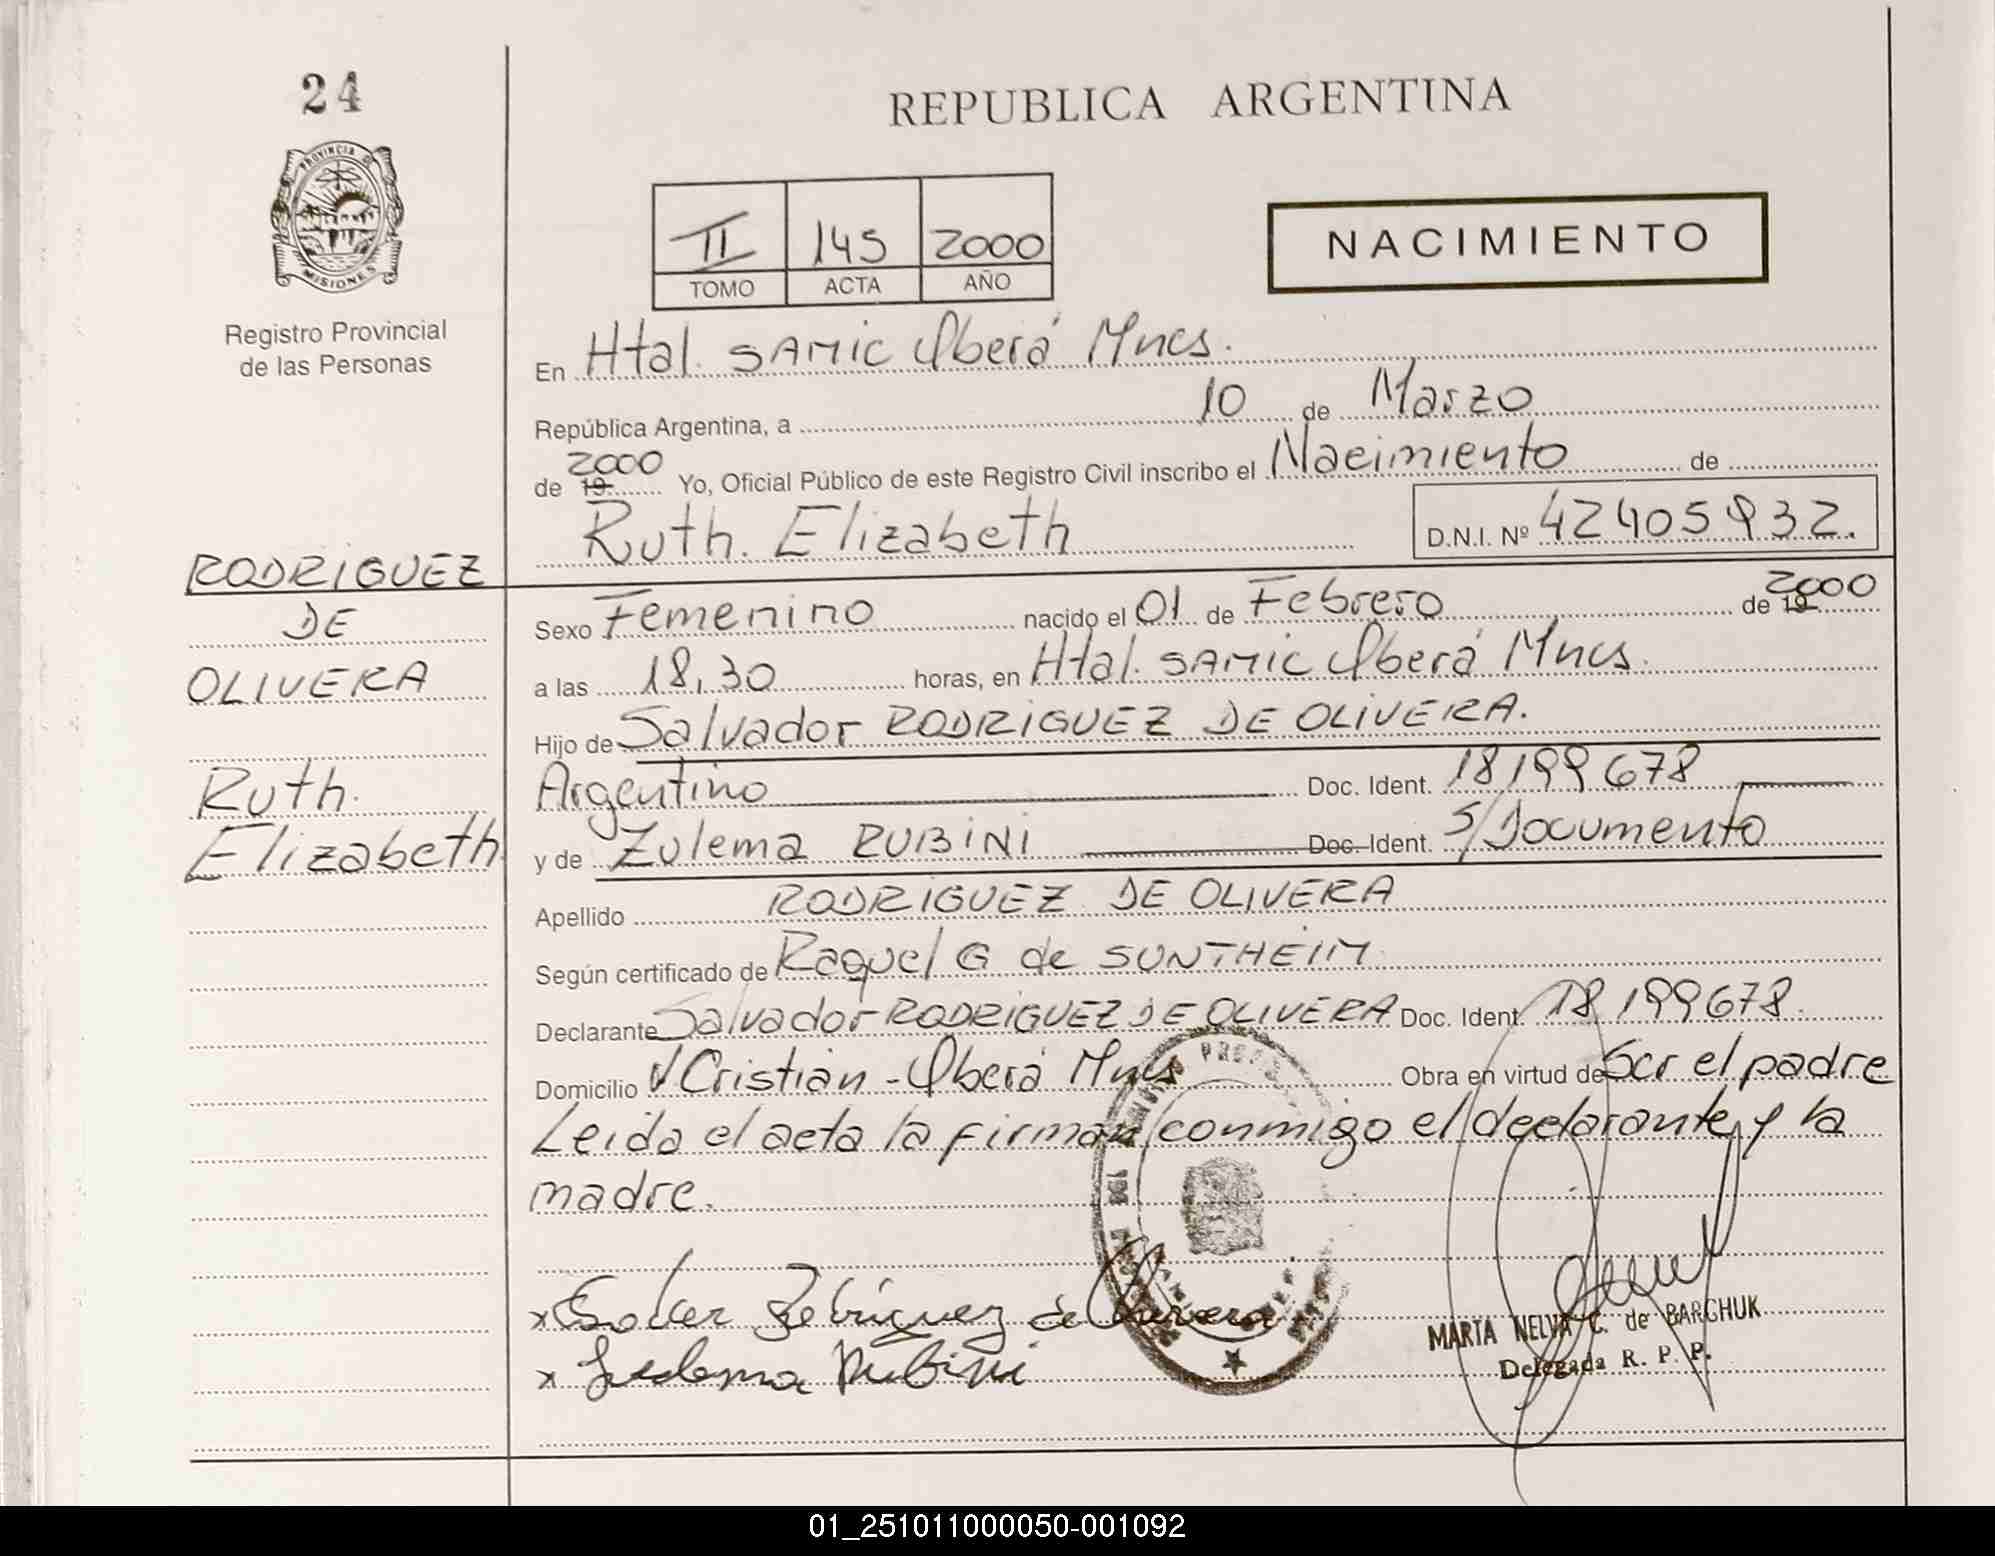 24
REPUBLICA ARGENTINA
PROVINCIA DE
MISIONES
II 145 2000
TOMO ACTA AÑO
NACIMIENTO
Registro Provincial
de las Personas
En Htal. SAMIC Oberá Mnes.
República Argentina, a 10 de Marzo
de 19 2000 Yo, Oficial Público de este Registro Civil inscribo el Nacimiento de
Ruth. Elizabeth D.N.I. Nº 42405932.
RODRIGUEZ
DE
OLIVERA
Ruth.
Elizabeth
Sexo Femenino nacido el 01 de Febrero de 19 2000
a las 18,30 horas, en Htal. SAMIC Oberá Mnes.
Hijo de Salvador RODRIGUEZ DE OLIVERA.
Argentino Doc. Ident. 18199678
y de Zulema RUBINI Doc. Ident. S/Documento
Apellido RODRIGUEZ DE OLIVERA
Según certificado de Raquel G de SUNTHEIM
Declarante Salvador RODRIGUEZ DE OLIVERA Doc. Ident. 18199678.
Domicilio V Cristian - Oberá Mnes Obra en virtud de Ser el padre
Leida el acta la firman conmigo el declarante y la
madre.
x Rodriguez de Olivera
x Zulema Rubini
MARIA NELVA C. de BARCHUK
Delegada R. P. P.
01_251011000050-001092